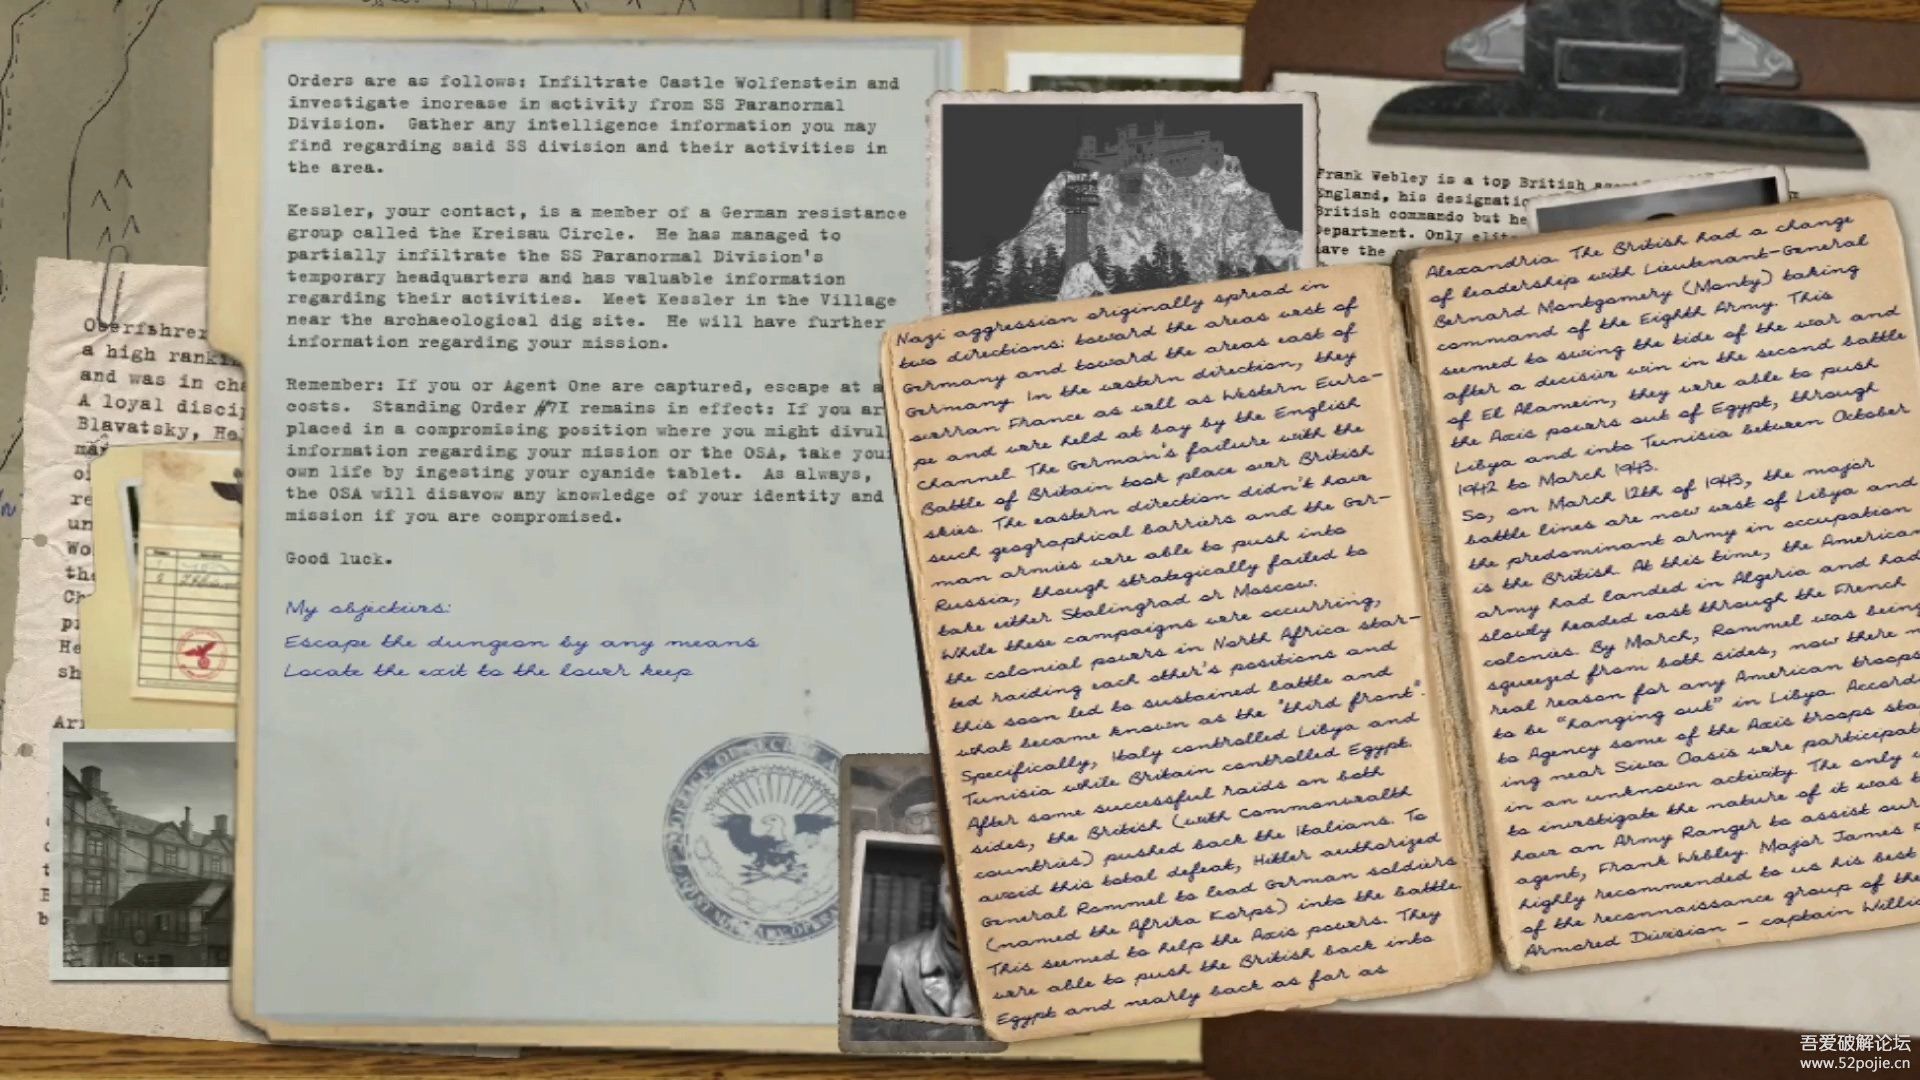 Orders are as follows: Infiltrate Castle Wolfenstein and
investigate increase in activity from SS Paranormal
Division. Gather any intelligence information you may
find regarding said SS division and their activities in
the area.
Kessler, your contact, is a member of a German resistance
group called the Kreisau Circle. He has managed to
partially infiltrate the SS Paranormal Division's
temporary headquarters and has valuable information
regarding their activities. Meet Kessler in the Village
near the archaeological dig site. He will have further
information regarding your mission.
Remember: If you or Agent One are captured, escape at a
costs. Standing Order #7I remains in effect: If you ar
placed in a compromising position where you might divul
information regarding your mission or the OSA, take you
own life by ingesting your cyanide tablet. As always,
the OSA will disavow any knowledge of your identity and
mission if you are compromised.
Good luck.
My objectives:
Escape the dungeon by any means
Locate the exit to the lower keep
a high ranki
and was in cha
A loyal discip
Blavatsky, He
Frank Webley is a top British
England, his designatio
British commando but he
Department. Only elit
have the
Nazi aggression originally spread in
two directions: toward the areas west of
Germany and toward the areas east of
Germany. In the western direction, they
overran France as well as Western Euro-
pe and were held at bay by the English
Channel. The German's failure with the
Battle of Britain took place over British
skies. The eastern direction didn't have
such geographical barriers and the Ger-
man armies were able to push into
Russia, though strategically failed to
take either Stalingrad or Moscow.
While these campaigns were occurring,
the colonial powers in North Africa star-
ted raiding each other's positions and
this soon led to sustained battle and
what became known as the "third front".
Specifically, Italy controlled Libya and
Tunisia while Britain controlled Egypt.
After some successful raids on both
sides, the British (with Commonwealth
countries) pushed back the Italians. To
avoid this total defeat, Hitler authorized
General Rommel to lead German soldiers
(named the Afrika Korps) into the battle.
This seemed to help the Axis powers. They
were able to push the British back into
Egypt and nearly back as far as
Alexandria. The British had a change
of leadership with Lieutenant-General
Bernard Montgomery (Monty) taking
command of the Eighth Army. This
seemed to swing the tide of the war and
after a decisive win in the second battle
of El Alamein, they were able to push
the Axis powers out of Egypt, through
Libya and into Tunisia between October
1942 to March 1943.
So, on March 12th of 1943, the major
battle lines are now west of Libya and
the predominant army in occupation
is the British. At this time, the American
army had landed in Algeria and had
slowly headed east through the French
colonies. By March, Rommel was being
squeezed from both sides, now there
real reason for any American troops
to be "hanging out" in Libya. Accord
to Agency some of the Axis troops sta
ing near Siwa Oasis were participat
in an unknown activity. The only
to investigate the nature of it was t
have an Army Ranger to assist our
agent, Frank Webley. Major James
highly recommended to us his best
of the reconnaissance group of the
Armored Division - captain Willi
吾爱破解论坛
www.52pojie.cn